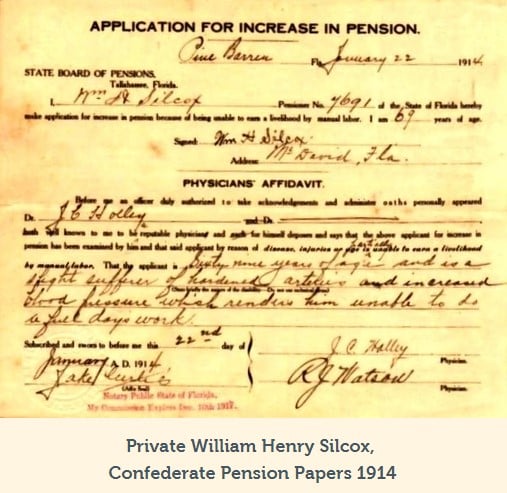 APPLICATION FOR INCREASE IN PENSION.
Pine Barren Fla January 22 1914
STATE BOARD OF PENSIONS.
Tallahassee, Florida.
I, Wm H Silcox Pensioner No. 7691 of the State of Florida hereby
make application for increase in pension because of being unable to earn a livelihood by manual labor. I am 69 years of age.
Signed: Wm H Silcox
Address: Mc David, Fla.
PHYSICIANS' AFFIDAVIT.
Before me an officer duly authorized to take acknowledgements and administer oaths personally appeared
Dr. J C Holley and Dr.
both well known to me to be reputable physicians and each for himself deposes and says that the above applicant for increase in
pension has been examined by him and that said applicant by reason of disease, injuries or age is partially unable to earn a livelihood
by manual labor. That the applicant is Sixty nine years of age and is a
slight sufferer of hardened arteries and increased
blood pressure which renders him unable to do
a full days work.
Subscribed and sworn to before me this 22nd day of
January A. D. 1914
J. C. Holley
Physician.
Jake Curtis
R J Watson
Physician.
Notary Public State of Florida.
My Commission Expires Dec. 10th 1917.
Private William Henry Silcox,
Confederate Pension Papers 1914